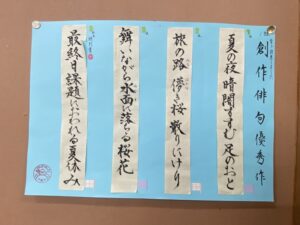 創作俳句優秀作
夏の夜暗闇すすむ足のおと
旅の路儚き桜散りにけり
舞いながら水面に落ちる桜花
最終日課題におわれる夏休み